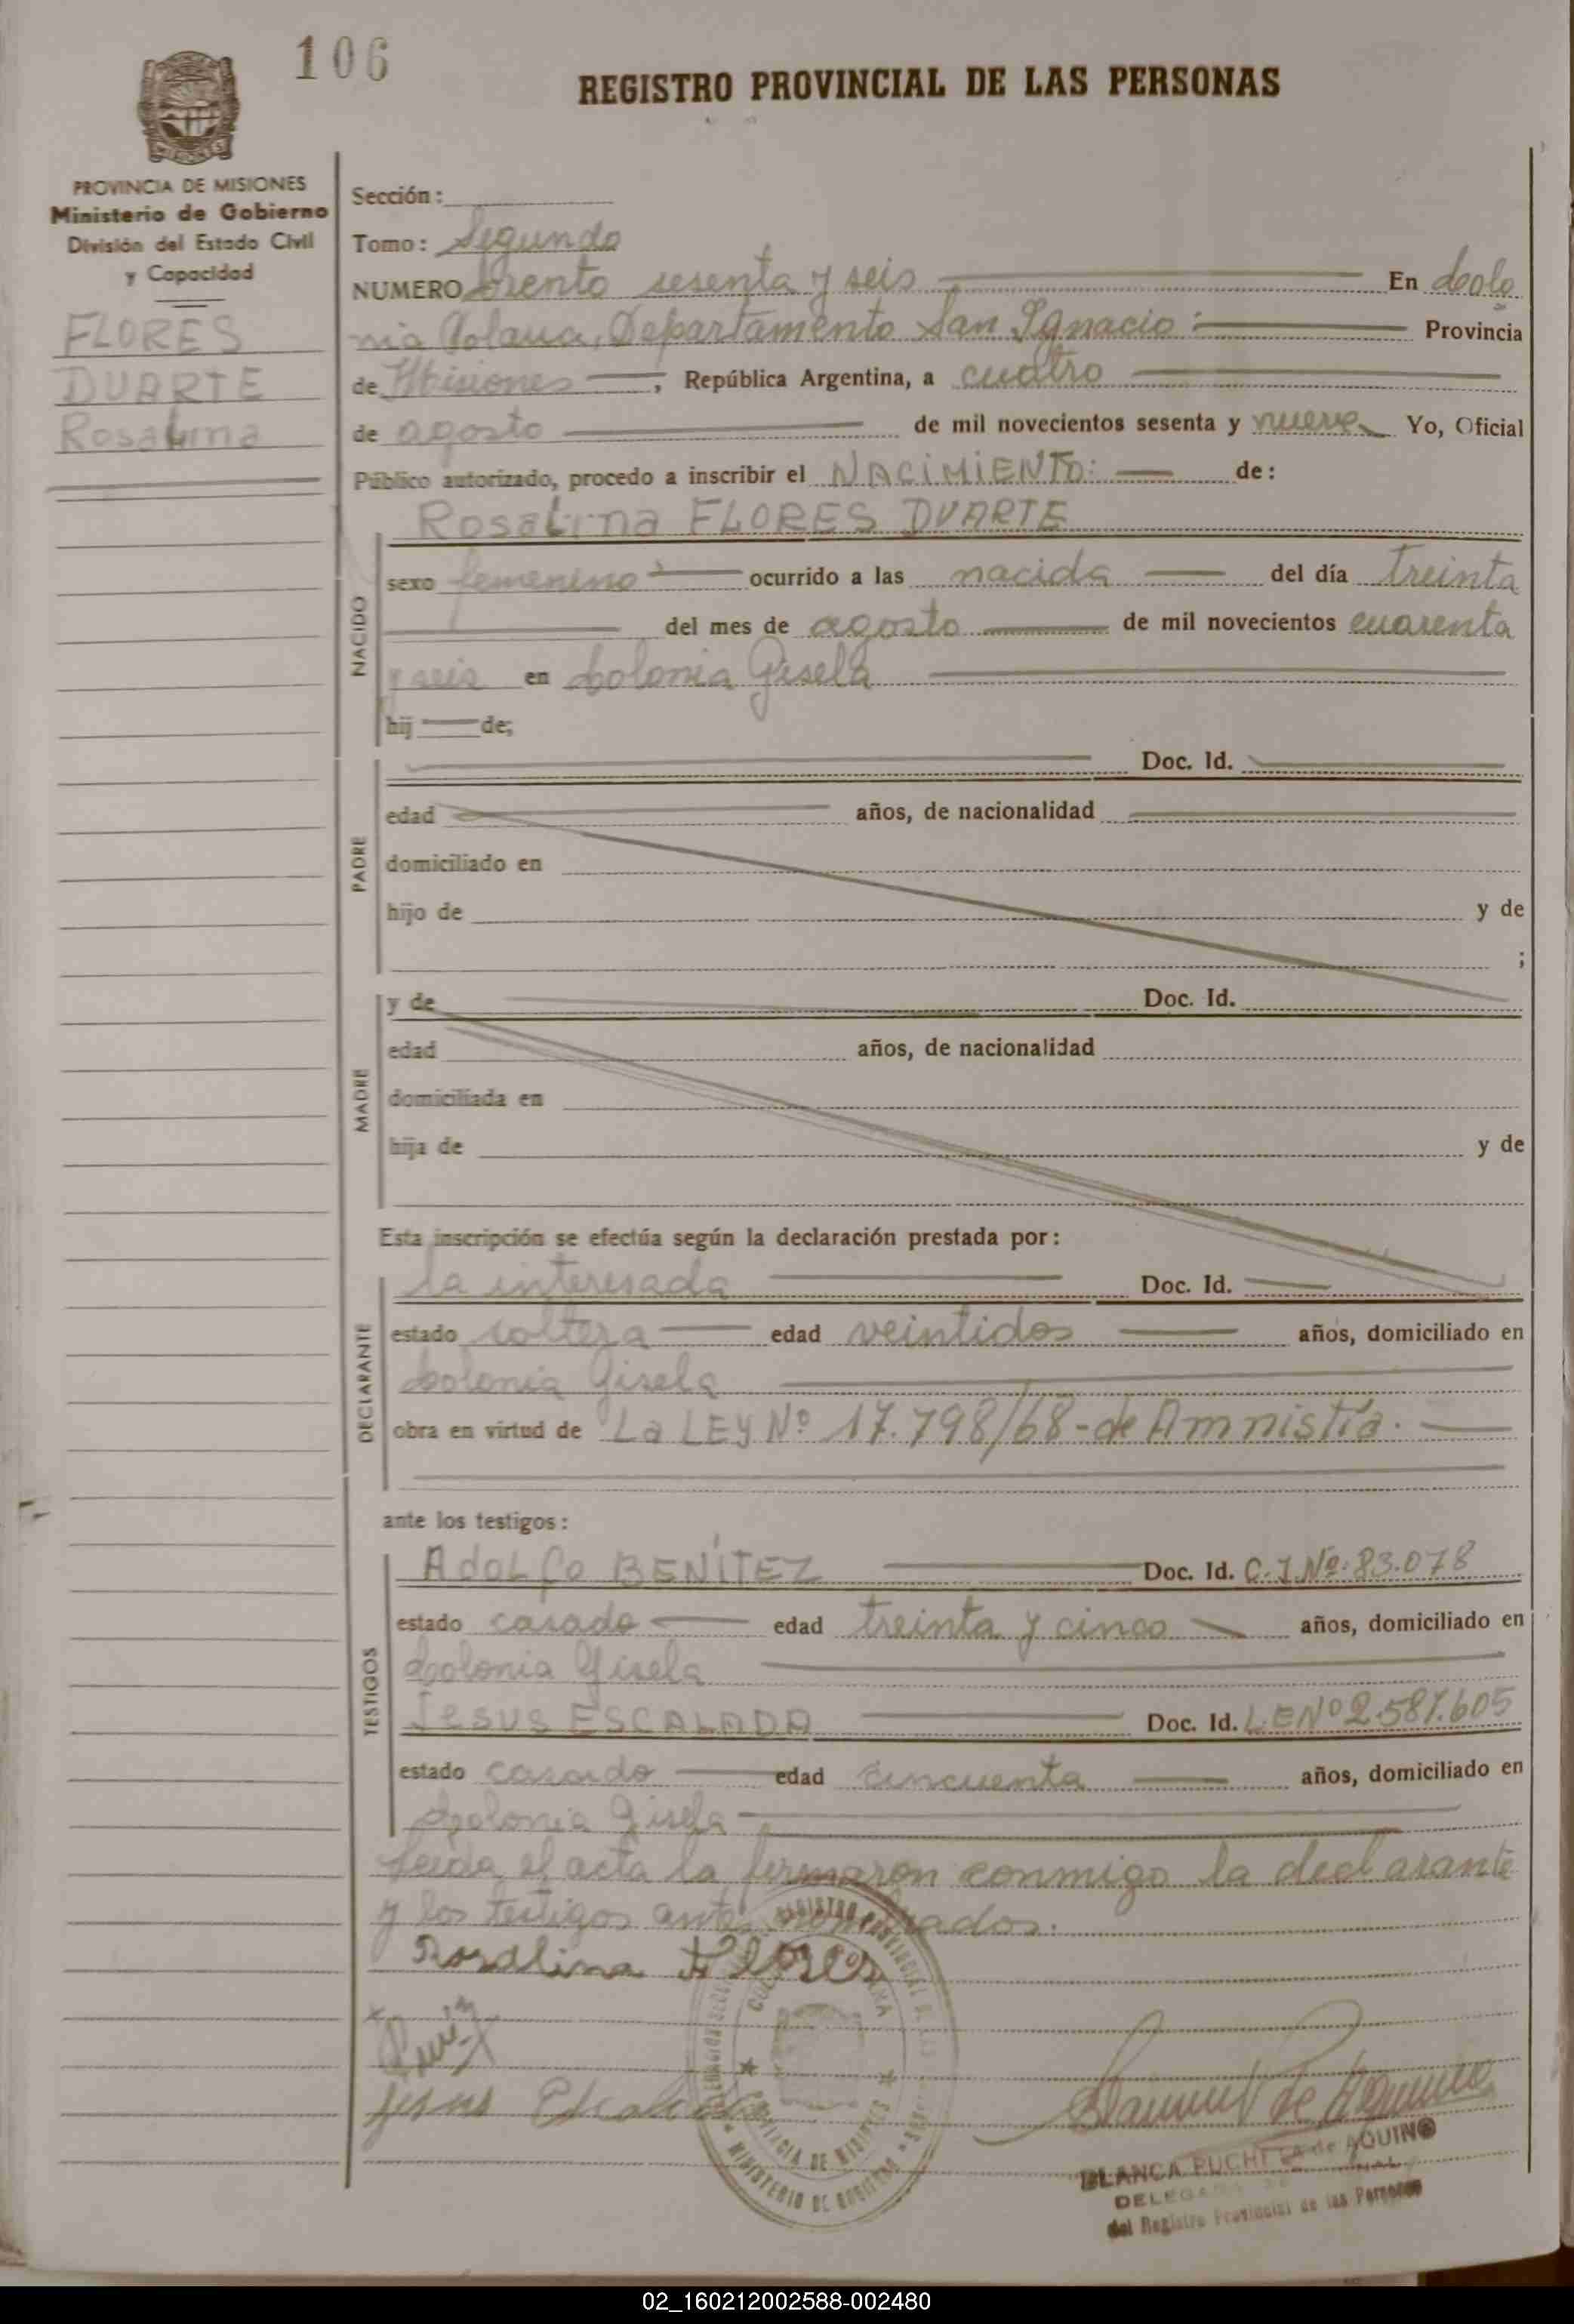 106
REGISTRO PROVINCIAL DE LAS PERSONAS
MISIONES
PROVINCIA DE MISIONES
Ministerio de Gobierno
División del Estado Civil
y Capacidad
FLORES
DUARTE
Rosalina
Sección:
Tomo: Segundo
NUMERO ciento sesenta y seis En Colo
nia Polana, Departamento San Ignacio: Provincia
de Misiones, República Argentina, a cuatro
de agosto de mil novecientos sesenta y nueve Yo, Oficial
Público autorizado, procedo a inscribir el NACIMIENTO: de:
NACIDO
Rosalina FLORES DUARTE
sexo femenino ocurrido a las nacida del día treinta
del mes de agosto de mil novecientos cuarenta
y seis en Colonia Gisela
hij de;
PADRE
Doc. Id.
edad años, de nacionalidad
domiciliado en
hijo de y de
;
MADRE
y de Doc. Id.
edad años, de nacionalidad
domiciliada en
hija de y de
Esta inscripción se efectúa según la declaración prestada por:
DECLARANTE
la interesada Doc. Id.
estado soltera edad veintidos años, domiciliado en
Colonia Gisela
obra en virtud de La LEY Nº 17.798/68-de Amnistía.
ante los testigos:
TESTIGOS
Adolfo BENÍTEZ Doc. Id. C.I.Nº:83.078
estado casado edad treinta y cinco años, domiciliado en
Colonia Gisela
Jesus ESCALADA Doc. Id. L.E Nº 2.587.605
estado casado edad cincuenta años, domiciliado en
Colonia Gisela
Leida el acta la firmaron conmigo la declarante
y los testigos antes nombrados.
Rosalina Flores
Jesus Escalada
BLANCA PUCHETA de AQUINO
DELEGADA
del Registro Provincial de las Personas
REGISTRO PROVINCIAL DE LAS
PROVINCIA DE MISIONES
MINISTERIO DE GOBIERNO
02_160212002588-002480